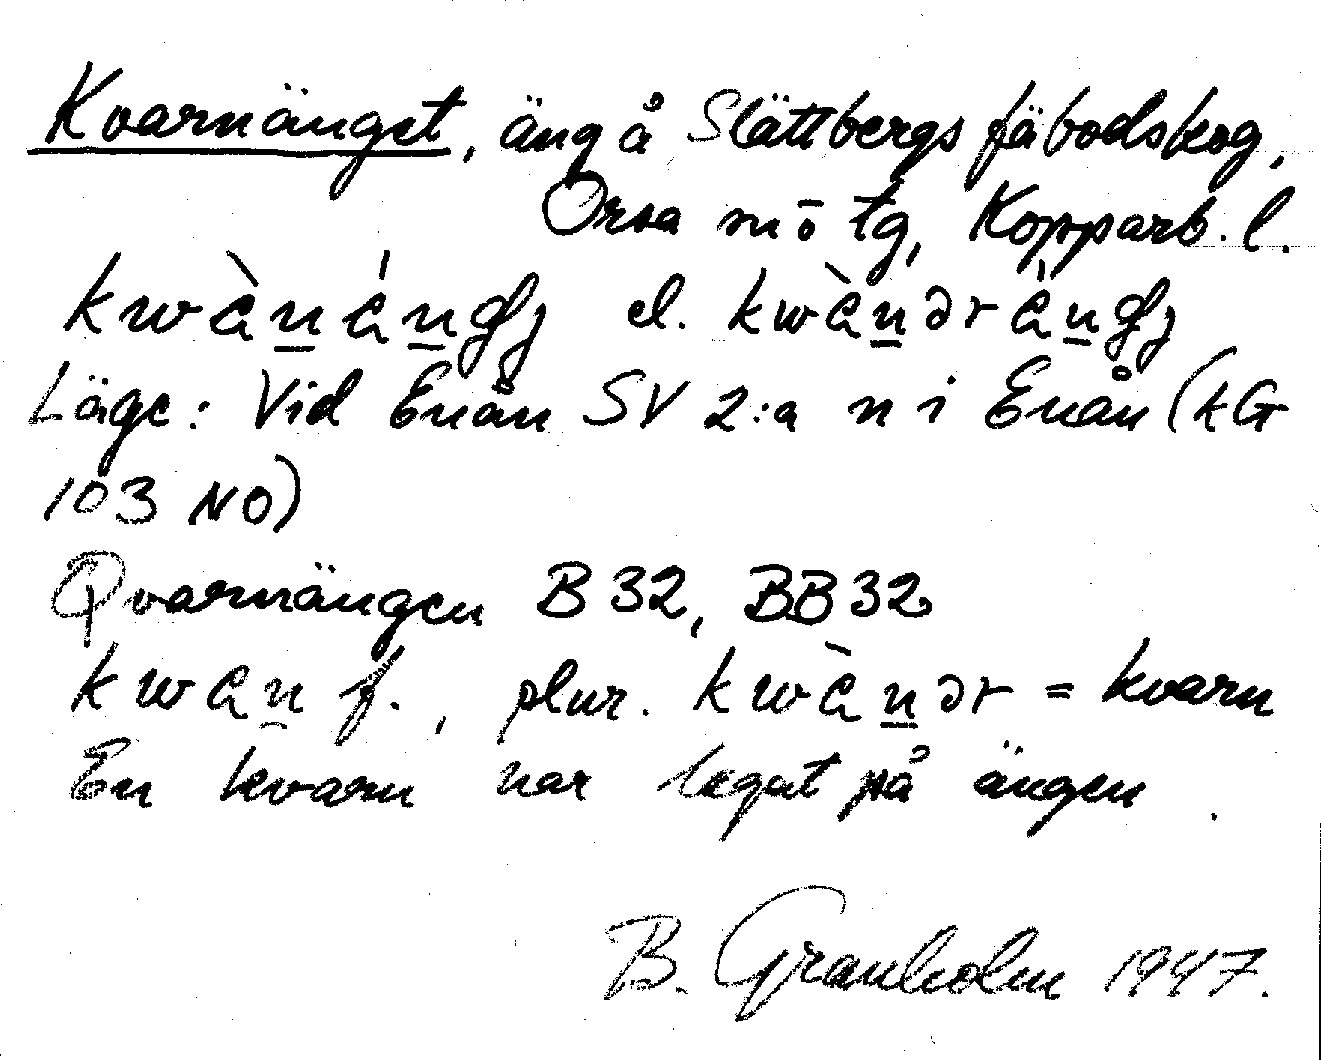 Kvarnänget, äng å Slättbergs fäbodskog,
Orsa sn ö tg, Kopparb. l.
el.
Läge: Vid Enån SV 2:a n i Enån (kG
103 NO)
Qvarnängen B 32, BB 32
kwan f., plur. kwànər = kvarn
En kvarn har legat på ängen.
B. Granholm 1947.